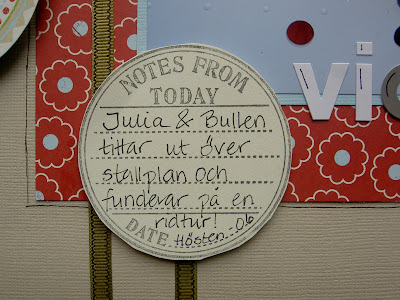 NOTES FROM
TODAY
Julia & Bullen
tittar ut över
stallplan och
funderar på en
ridtur!
DATE Hösten -06
vi